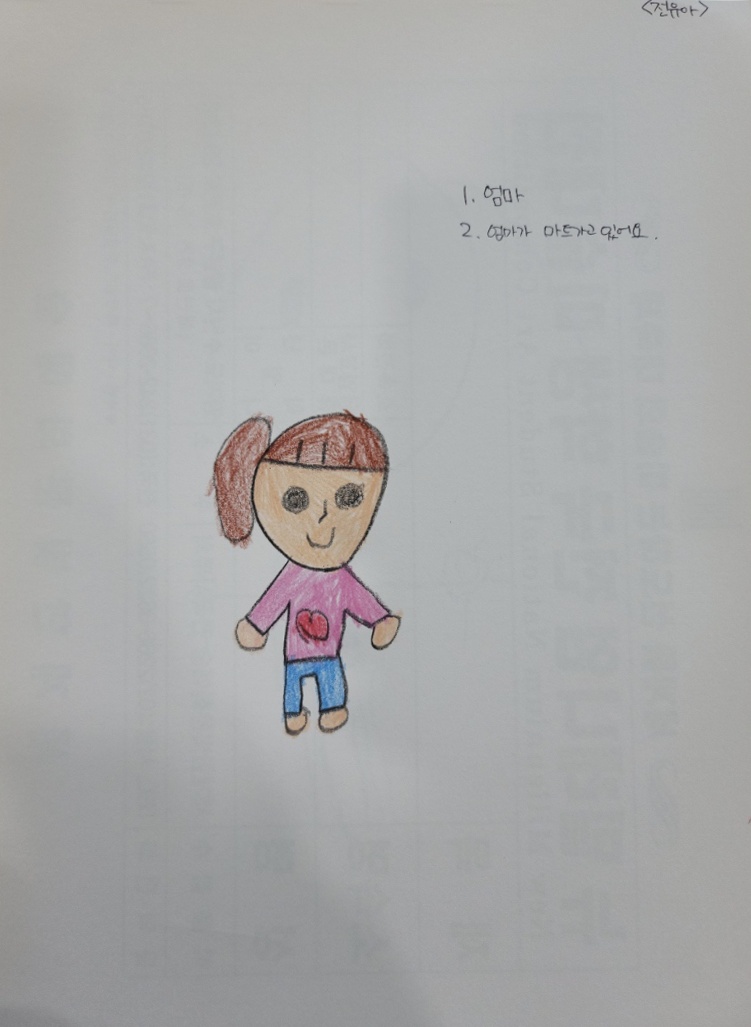 <전유아>
1. 엄마
2. 엄마가 마트가고있어요.